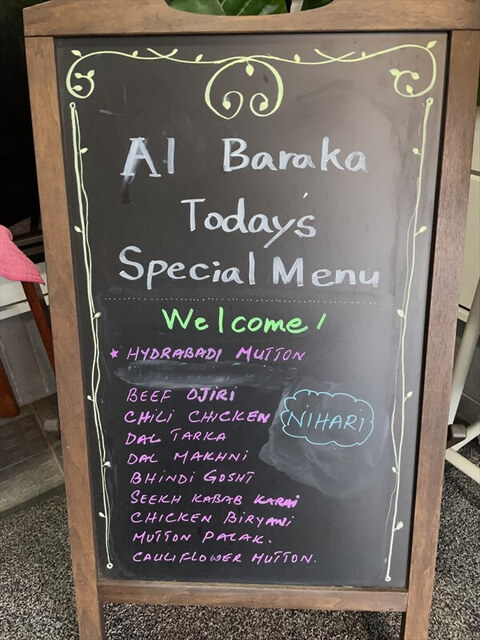 Al Baraka
Today's
Special Menu
Welcome!
★ HYDRABADI MUTTON
BEEF OJIRI
CHILI CHICKEN
NIHARI
DAL TARKA
DAL MAKHNI
BHINDI GOSHT
SEEKH KABAB KARAI
CHICKEN BIRYANI
MUTTON PALAK.
CAULIFLOWER MUTTON.